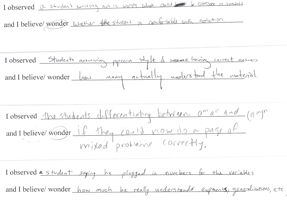 I observed a student writing
and I believe/ wonder whether the student is comfortable with notation
I observed students answering & correct answers
and I believe/ wonder how many actually understand the material
I observed the students differentiating between and
and I believe/ wonder if they could now do a page of
mixed problems correctly.
I observed a student saying he plugged in numbers for the variables
and I believe/ wonder how much he really understands exponents, generalizations, etc